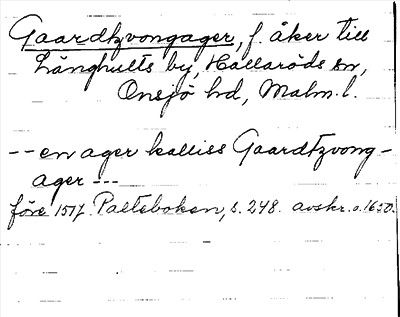 Gaardtzvongager, f. åker till
Långhults by, Hallaröds sn,
Onsjö hd, Malm. l.
-- en ager kalliss Gaardtzvong-
ager ---
före 1517. Palteboken, s. 248. avskr. o. 1650.